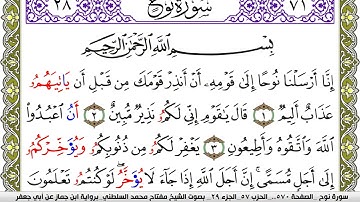 ٢٨ سُورَةُ نُوحٍ ٧١
بِسْمِ اللَّهِ الرَّحْمَٰنِ الرَّحِيمِ
إِنَّا أَرْسَلْنَا نُوحًا إِلَىٰ قَوْمِهِ أَنْ أَنذِرْ قَوْمَكَ مِن قَبْلِ أَن يَاتِيَهُمُ
عَذَابٌ أَلِيمٌ ١ قَالَ يَٰقَوْمِ إِنِّي لَكُمُ نَذِيرٌ مُّبِينٌ ٢ أَنُ اعْبُدُوا
اللَّهَ وَاتَّقُوهُ وَأَطِيعُونِ ٣ يَغْفِرْ لَكُمُ مِن ذُنُوبِكُمُ وَيُوَخِّرْكُمُ
إِلَىٰ أَجَلٍ مُّسَمًّى إِنَّ أَجَلَ اللَّهِ إِذَا جَاءَ لَا يُوَخَّرُ لَوْ كُنتُمُ تَعْلَمُونَ
سورة نوح _ الصفحة ٥٧٠ _ الحزب ٥٧ _ الجزء ٢٩ _ بصوت الشيخ مفتاح محمد السلطني _ برواية ابن جماز عن أبي جعفر